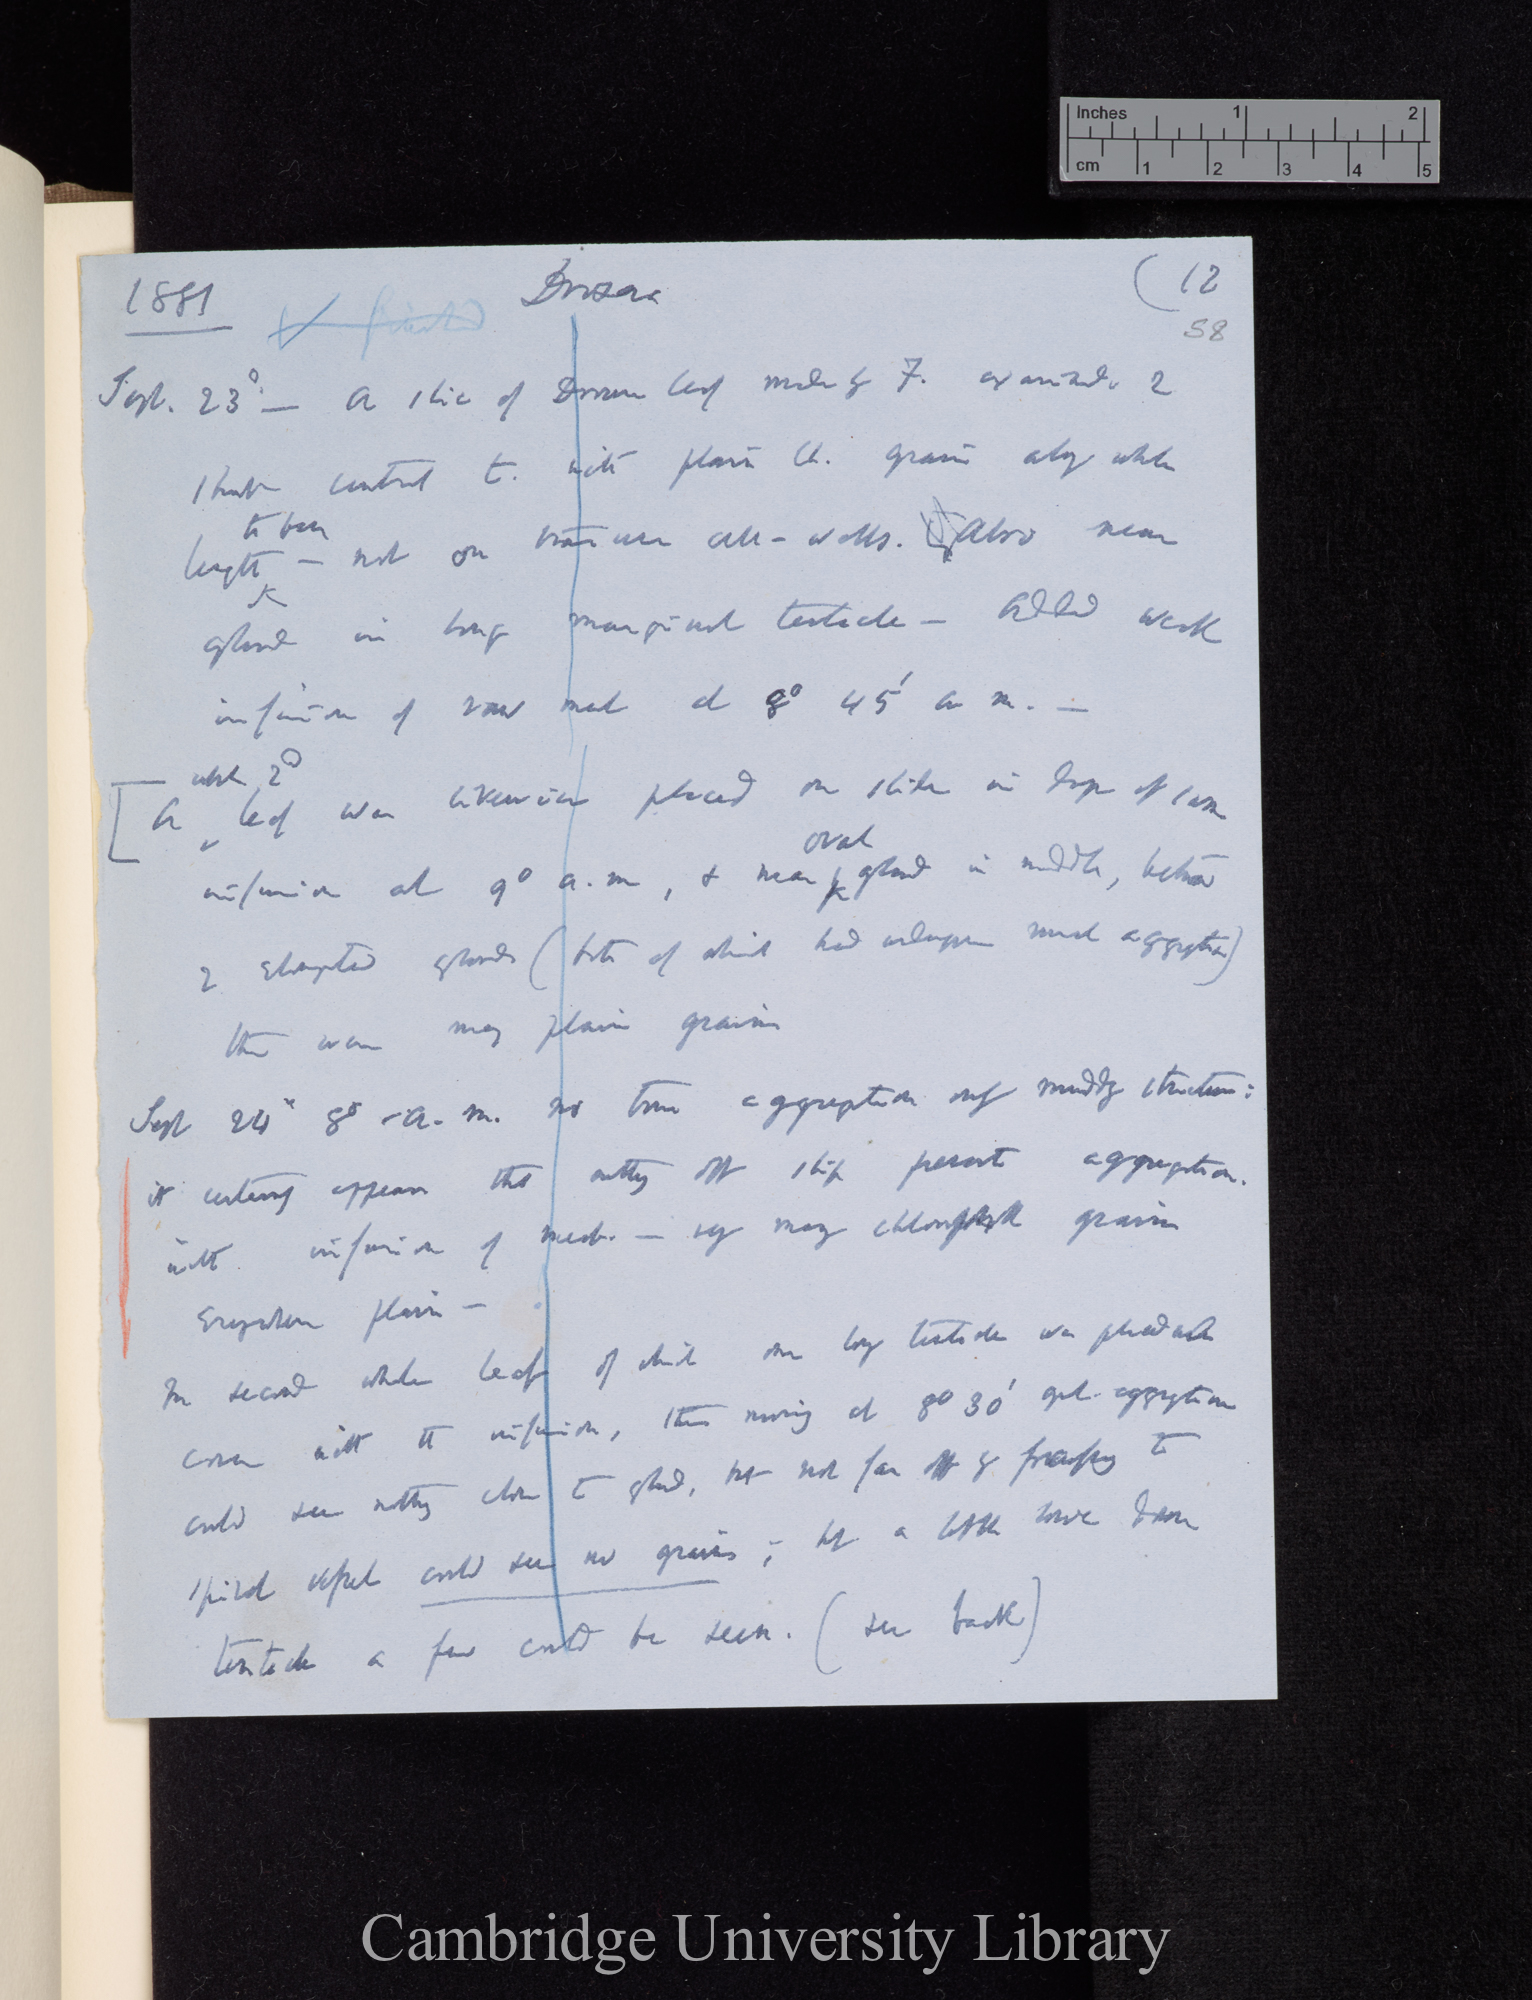 Inches 1 2
cm 1 2 3 4 5
1881 Drosera (12
58
Sept. 23° — A slice of Drosera leaf made by F. examined. 2
short central t. with plain Ch. grains along whole
to base
length — not on transverse cell-walls. Also near
gland in long marginal tentacle — Added weak
infusion of raw meat at 8° 45' a.m. —
whole 2°
[A leaf was likewise placed on slide in drop of same
oval
infusion at 9° a.m, & near gland in middle, between
2 elongated glands (both of which had undergone much aggregation)
there were many plain grains
Sept 24" 8° a.m. no true aggregation only muddy structure:
it certainly appears that cutting off slip prevents aggregation.
with infusion of meat. — very many chlorophyll grains
everywhere plain —
In second whole leaf of which one long tentacle was placed
cover with the infusion, this morning at 8° 30' great aggregation
could see nothing close to gland, but not far off by focussing to
spiral vessel could see no grains; but a little lower down
tentacle a few could be seen. (see back)
Cambridge University Library